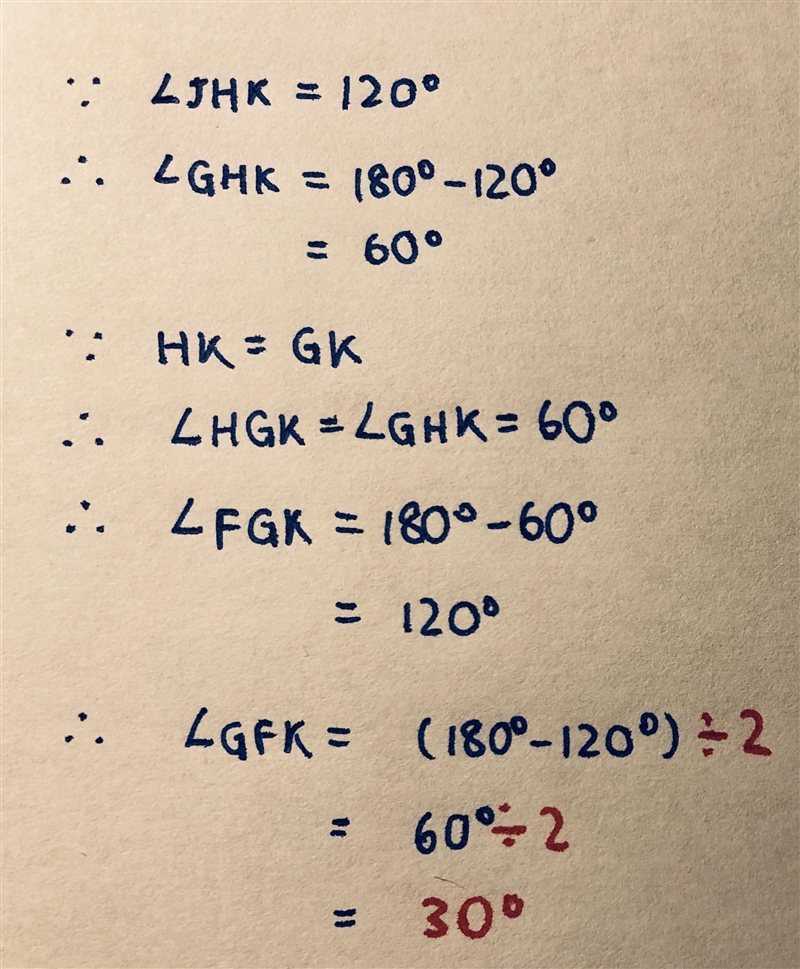 ∵ ∠JHK = 120°
∴ ∠GHK = 180° - 120°
= 60°
∵ HK = GK
∴ ∠HGK = ∠GHK = 60°
∴ ∠FGK = 180° - 60°
= 120°
∴ ∠GFK = (180° - 120°) ÷ 2
= 60° ÷ 2
= 30°